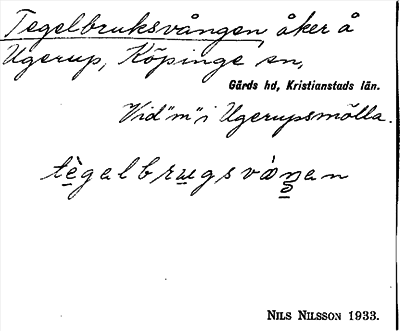 Tegelbruksvången, åker å
Ugerup, Köpinge sn,
Gärds hd, Kristianstads län.
Vid "m" i Ugerupsmölla.
NILS NILSSON 1933.